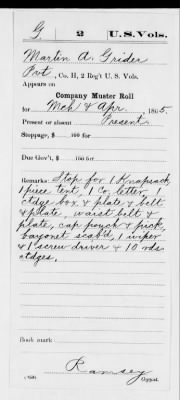 G | 2 | U.S. Vols.
Martin A. Grider
Pvt, Co. H, 2 Reg't U. S. Vols.
Appears on
Company Muster Roll
for Mch & Apr., 1865.
Present or absent Present
Stoppage, $ 100 for
Due Gov't, $ 100 for
Remarks Stop for 1 Knapsack
1 piece tent, 1 Co. letter, 1
ctdge box & plate & belt
& plate, waist belt &
plate, cap pouch & pick,
bayonet scab'd, 1 wiper
& 1 screw driver & 10 rds
ctdges.
Book mark:
Ramsey
(858) Copyist.